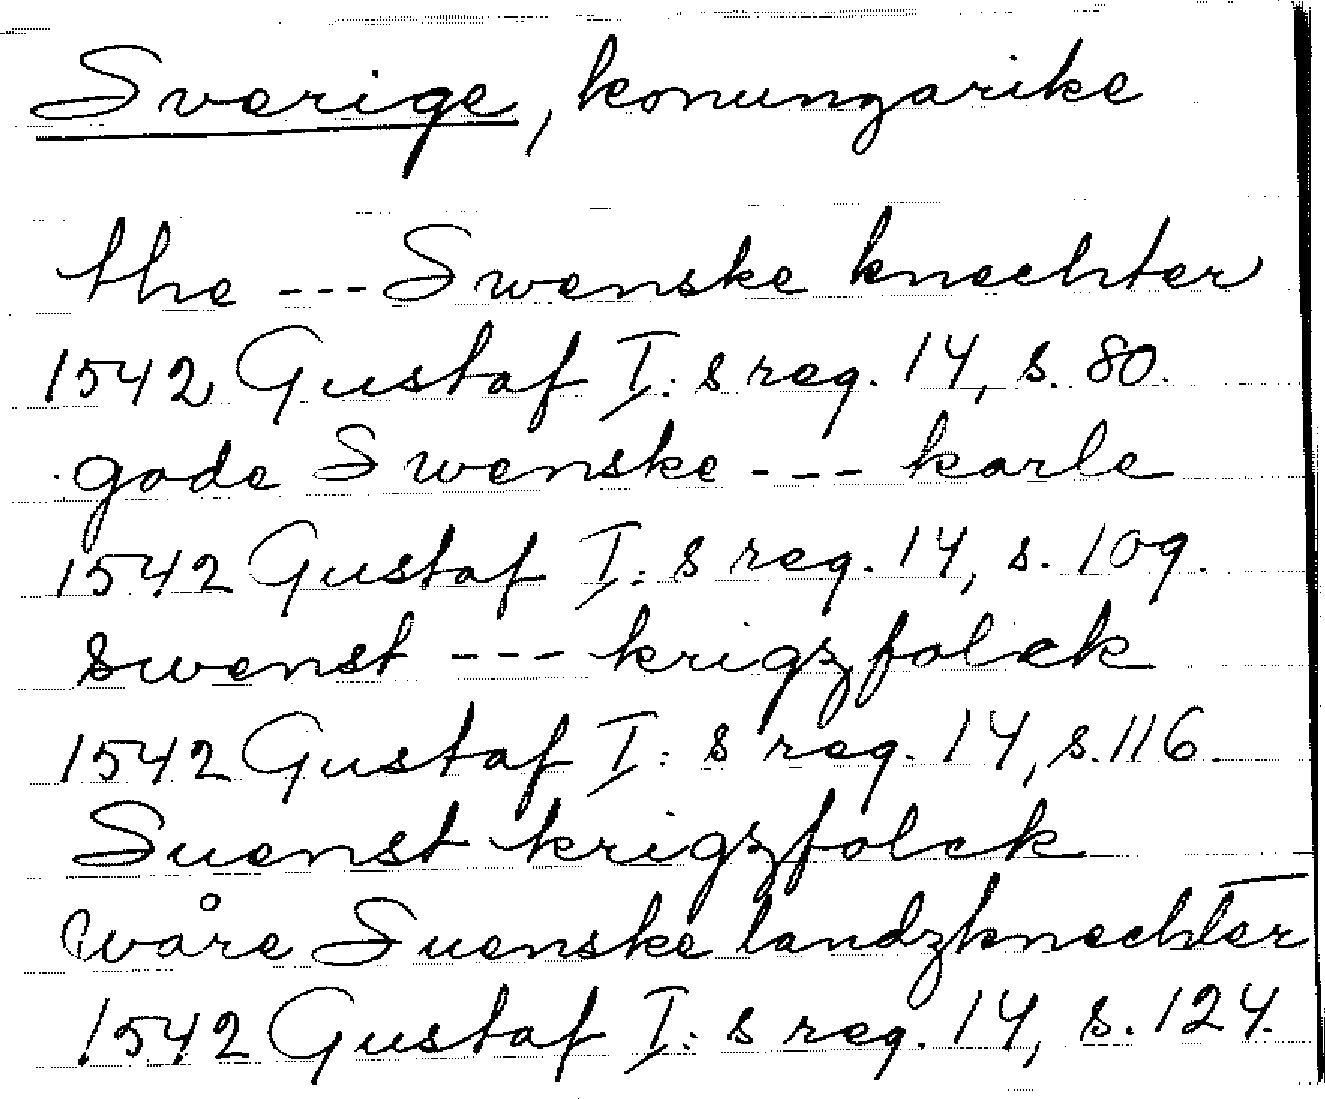 Sverige, konungarike
the --- Swenske knechter
1542 Gustaf I:s reg. 14, s. 80.
gode Swenske --- karle
1542 Gustaf I:s reg. 14, s. 109.
swenst --- krigzfolck
1542 Gustaf I:s reg. 14, s. 116.
Suenst krigzfolck
wåre Suenske landzknechter
1542 Gustaf I:s reg. 14, s. 124.